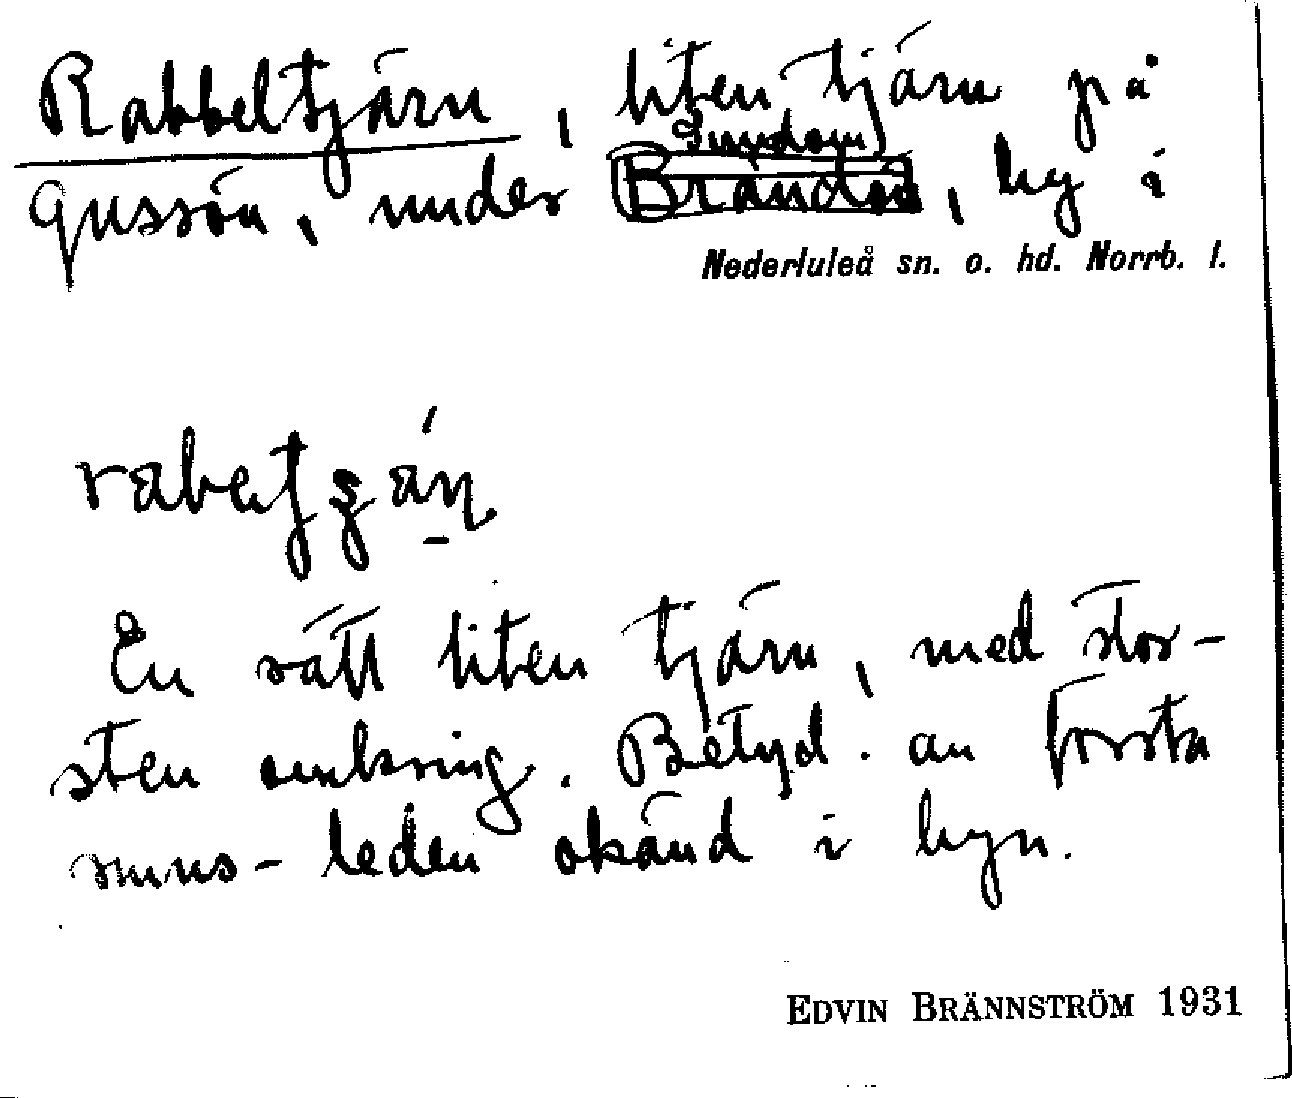 Rabbeltjärn, liten tjärn på
Sundom
Gussön, under Brändön, by i
Nederluleå sn. o. hd. Norrb. l.
En rätt liten tjärn, med stor-
sten omkring. Betyd. av första
smns-leden okänd i byn.
EDVIN BRÄNNSTRÖM 1931